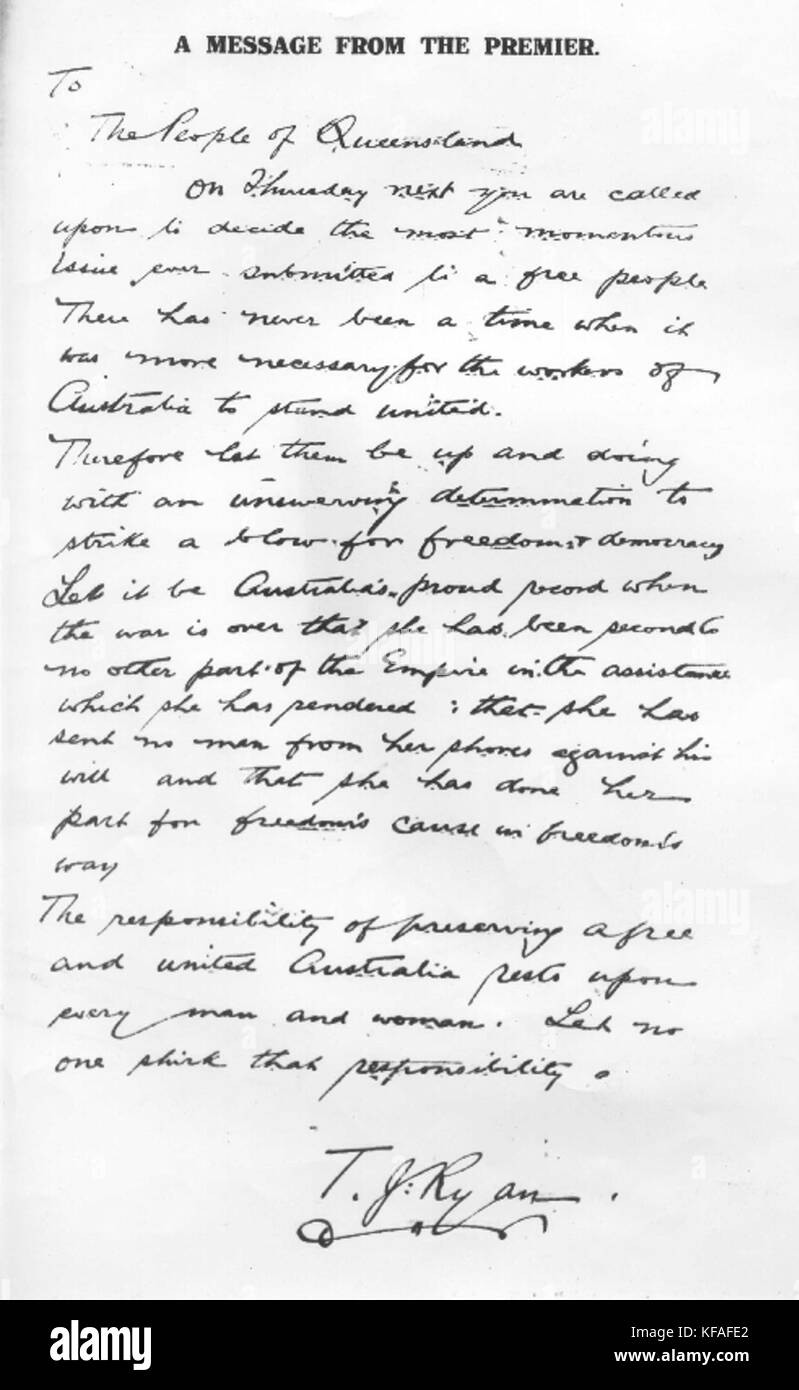 A MESSAGE FROM THE PREMIER.
To
The People of Queensland
On Thursday next you are called
upon to decide the most momentous
issue ever submitted to a free people
There has never been a time when it
was more necessary for the workers of
Australia to stand united.
Therefore let them be up and doing
with an unswerving determination to
strike a blow for freedom & democracy
Let it be Australia's proud record when
the war is over that she has been second to
no other part of the Empire in the assistance
which she has rendered : that she has
sent no man from her shores against his
will and that she has done her
part for freedom's cause in freedom's
way
The responsibility of preserving a free
and united Australia rests upon
every man and woman. Let no
one shirk that responsibility.
T. J. Ryan.
alamy
alamy
alamy
a
alamy
Image ID: KFAFE2
www.alamy.com